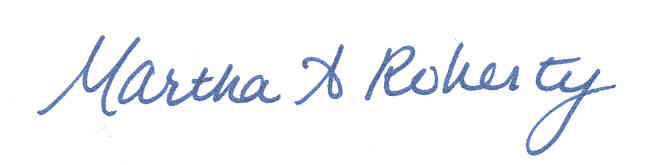 Martha A Roherty